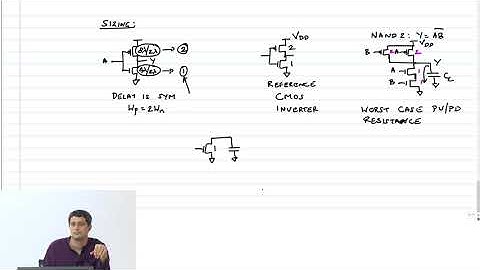 SIZING:
A
8λ/2λ
2
Y
8λ/2λ
1
DELAY IS SYM
Wp = 2Wn
VDD
2
1
REFERENCE
CMOS
INVERTER
NAND 2 : Y = AB
VDD
B
2
Y
A
1
B
CL
WORST CASE PU/PD
RESISTANCE
1